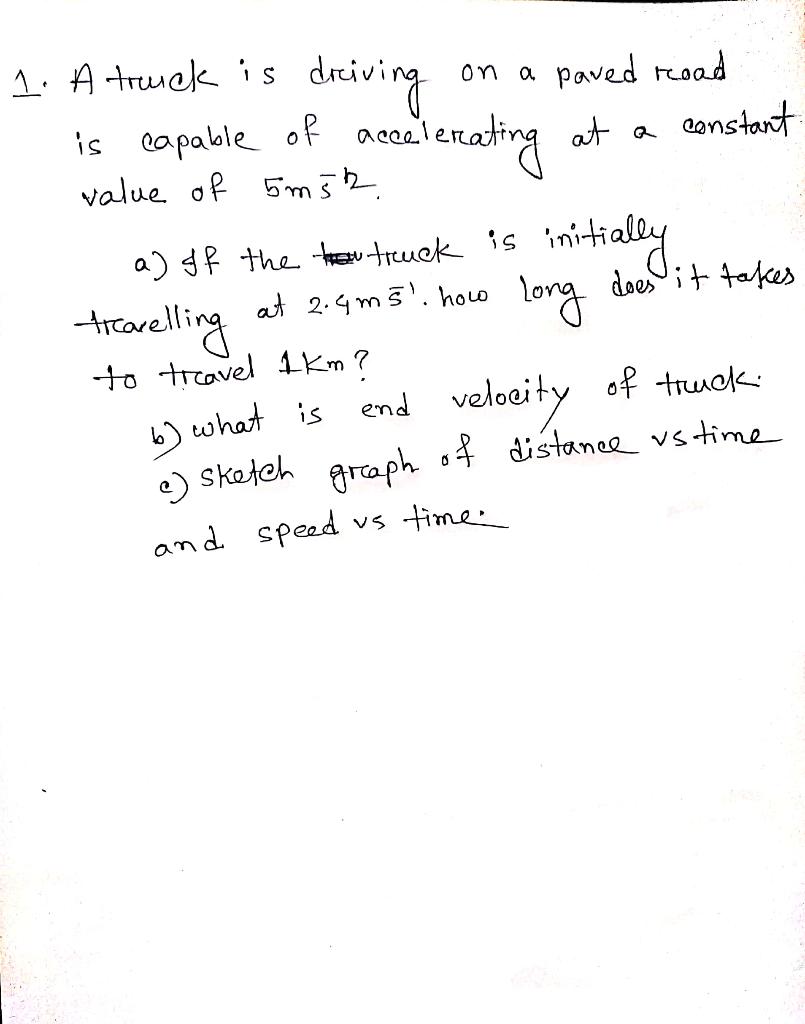 1. A truck is driving on a paved road
is capable of accelerating at a constant
value of 5ms⁻².
a) If the truck is initially
travelling at 2.4ms⁻¹. how long does it takes
to travel 1km?
b) what is end velocity of truck.
c) sketch graph of distance vs time
and speed vs time.